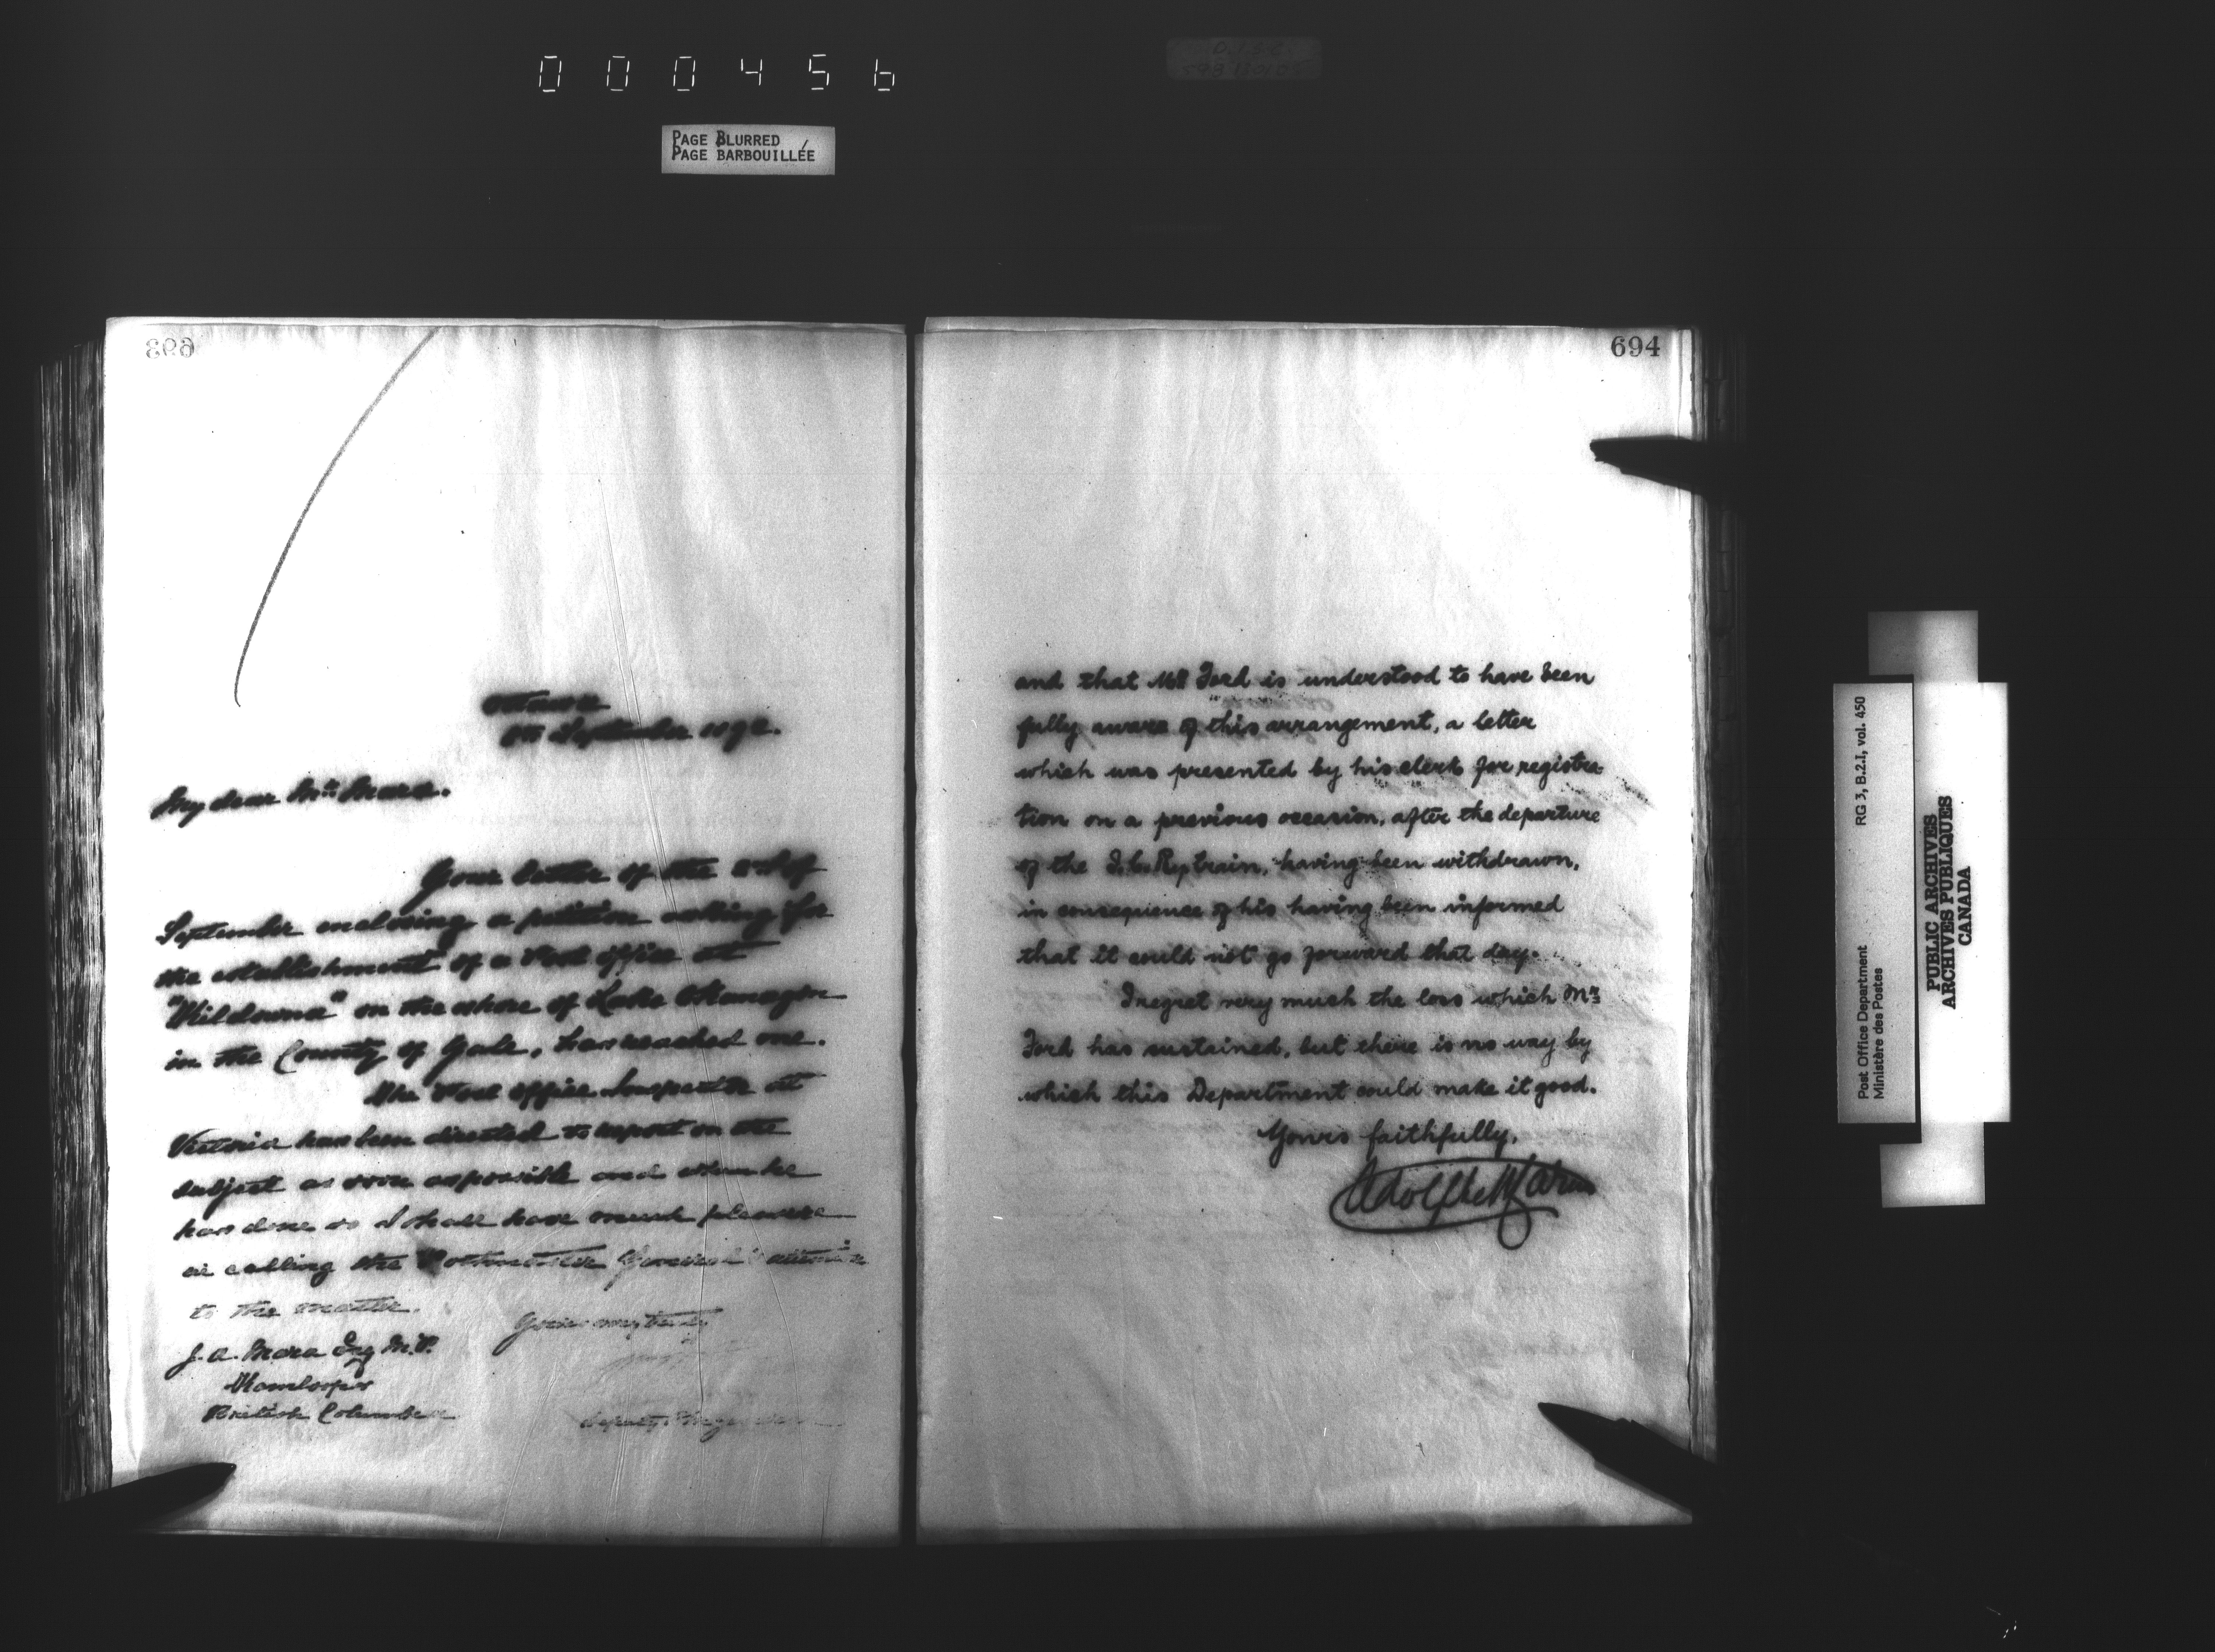 000456
PAGE BLURRED
PAGE BARBOUILLÉE
693
Ottawa
8th September 1892.
My dear Mr. Mara.
Your letter of the of
September enclosing a petition asking for
the establishment of a Post Office at
"Kildonna" on the shore of Lake Okanagan
in the County of Yale, has reached me.
The Post Office Inspector at
Victoria has been directed to report on the
subject as soon as possible and when he
has done so I shall have much pleasure
in calling the Postmaster General's attention
to the matter.
Yours very truly
J. A. Mara Esq M.P.
Kamloops
British Columbia
Deputy
694
and that Mr Ford is understood to have been
fully aware of this arrangement, a letter
which was presented by his clerk for registra
tion on a previous occasion, after the departure
of the I.C. Ry train, having been withdrawn,
in consequence of his having been informed
that it could not go forward that day.
I regret very much the loss which Mr
Ford has sustained, but there is no way by
which this Department could make it good.
Yours faithfully,
Adolphe P. Caron
RG 3, B.2.I, vol. 450
Post Office Department
Ministère des Postes
PUBLIC ARCHIVES
ARCHIVES PUBLIQUES
CANADA